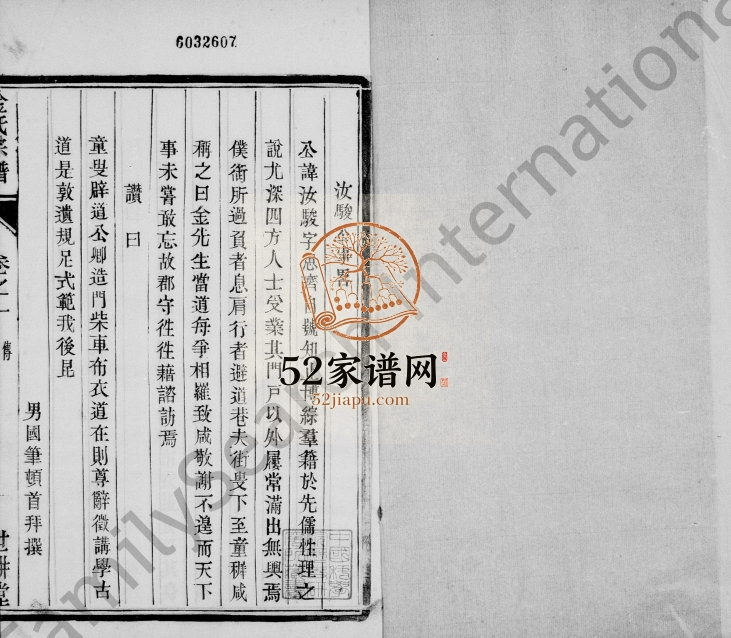 6032607
汝駿公事畧
公諱汝駿字
博綜羣籍於先儒性理之
說尤深四方人士受業其門戸以外屨常滿出無輿焉
僕衛所過負者息肩行者避道巷夫街叟下至童穉咸
稱之曰金先生當道每爭相羅致咸敬謝不遑而天下
事未嘗敢忘故郡守徃徃藉諮訪焉
讚曰
童叟辟道公卿造門柴車布衣道在則尊辭徵講學古
道是敦遺規足式範我後昆
男國筆頓首拜撰
金氏宗譜
卷之一
傳
世耕堂
52家谱网
52jiapu.com
FamilySearch International